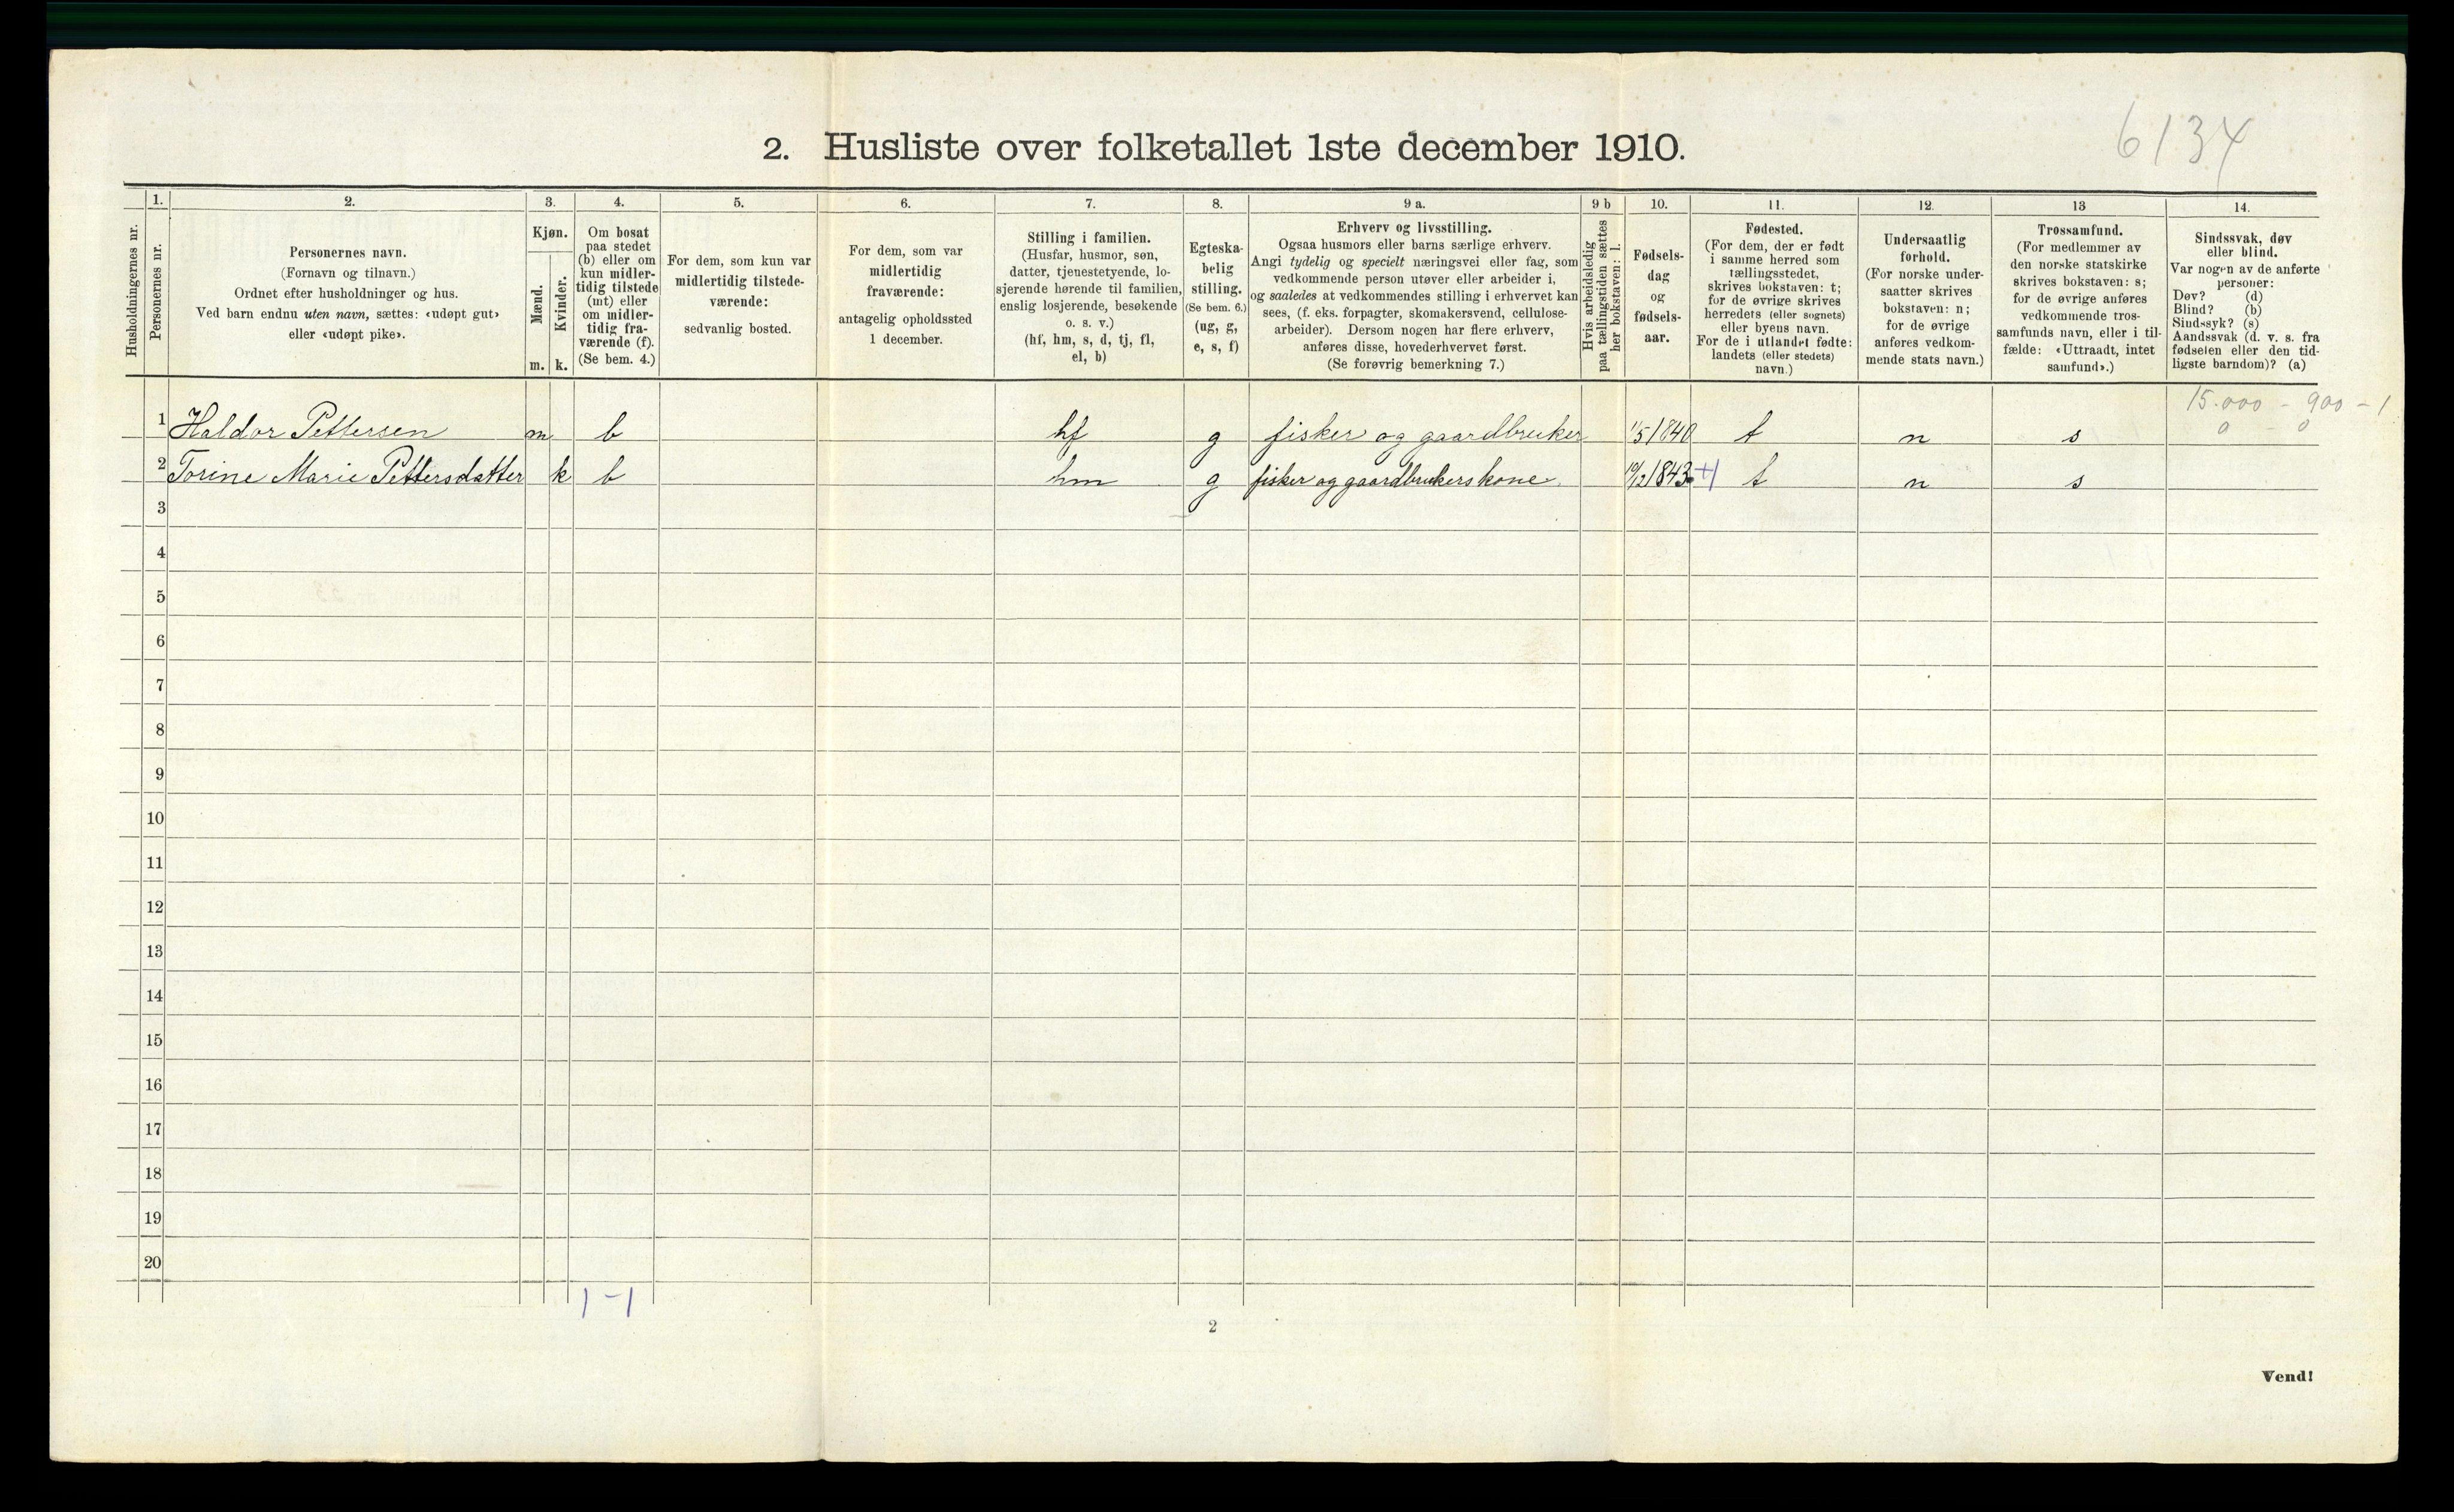 6134
2. Husliste over folketallet 1ste december 1910.
Husholdningernes nr.
1.
Personernes nr.
2.
Personernes navn.
(Fornavn og tilnavn.)
Ordnet efter husholdninger og hus.
Ved barn endnu uten navn, sættes: «udøpt gut»
eller «udøpt pike».
3.
Kjøn.
Mænd.
m.
Kvinder.
k.
4.
Om bosat
paa stedet
(b) eller om
kun midler-
tidig tilstede
(mt) eller
om midler-
tidig fra-
værende (f).
(Se bem. 4.)
5.
For dem, som kun var
midlertidig tilstede-
værende:
sedvanlig bosted.
6.
For dem, som var
midlertidig
fraværende:
antagelig opholdssted
1 december.
7.
Stilling i familien.
(Husfar, husmor, søn,
datter, tjenestetyende, lo-
sjerende hørende til familien,
enslig losjerende, besøkende
o. s. v.)
(hf, hm, s, d, tj, fl,
el, b)
8.
Egteska-
belig
stilling.
(Se bem. 6.)
(ug, g,
e, s, f)
9 a.
Erhverv og livsstilling.
Ogsaa husmors eller barns særlige erhverv.
Angi tydelig og specielt næringsvei eller fag, som
vedkommende person utøver eller arbeider i,
og saaledes at vedkommendes stilling i erhvervet kan
sees, (f. eks. forpagter, skomakersvend, cellulose-
arbeider). Dersom nogen har flere erhverv,
anføres disse, hovederhvervet først.
(Se forøvrig bemerkning 7.)
9 b
Hvis arbeidsledig
paa tællingstiden sættes
her bokstaven: l.
10.
Fødsels-
dag
og
fødsels-
aar.
11.
Fødested.
(For dem, der er født
i samme herred som
tællingsstedet,
skrives bokstaven: t;
for de øvrige skrives
herredets (eller sognets)
eller byens navn.
For de i utlandet fødte:
landets (eller stedets)
navn.)
12.
Undersaatlig
forhold.
(For norske under-
saatter skrives
bokstaven: n;
for de øvrige
anføres vedkom-
mende stats navn.)
13
Trossamfund.
(For medlemmer av
den norske statskirke
skrives bokstaven: s;
for de øvrige anføres
vedkommende tros-
samfunds navn, eller i til-
fælde: «Uttraadt, intet
samfund».)
14.
Sindssvak, døv
eller blind.
Var nogen av de anførte
personer:
Døv? (d)
Blind? (b)
Sindssyk? (s)
Aandssvak (d. v. s. fra
fødselen eller den tid-
ligste barndom)? (a)
15.000 - 900 - 1
0 - 0
1 Haldor Pettersen m b hf g fisker og gaardbruker 1/5 1840 t n s
2 Torine Marie Pettersdatter k b hm g fisker og gaardbrukers kone 10/12 1843 +1 t n s
3
4
5
6
7
8
9
10
11
12
13
14
15
16
17
18
19
20
1 - 1
2
Vend!